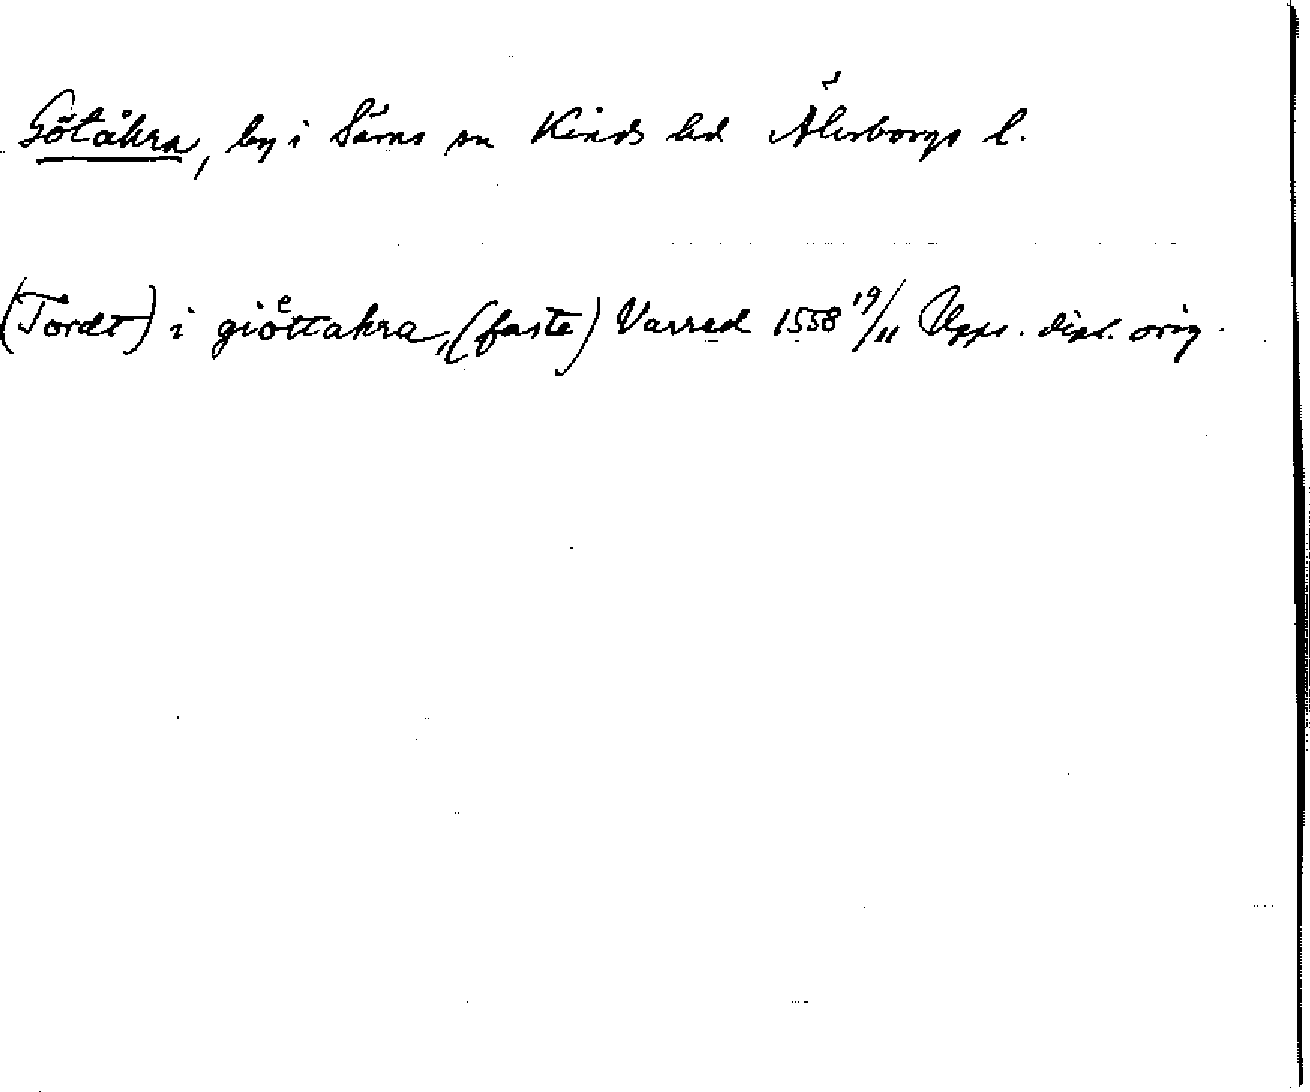 Götåkra, by i Särns sn Kinds hd Älvsborgs l.
(Tordt) i giöttakra, (faste) Varred 1558 19/11 Upps. dipl. orig.